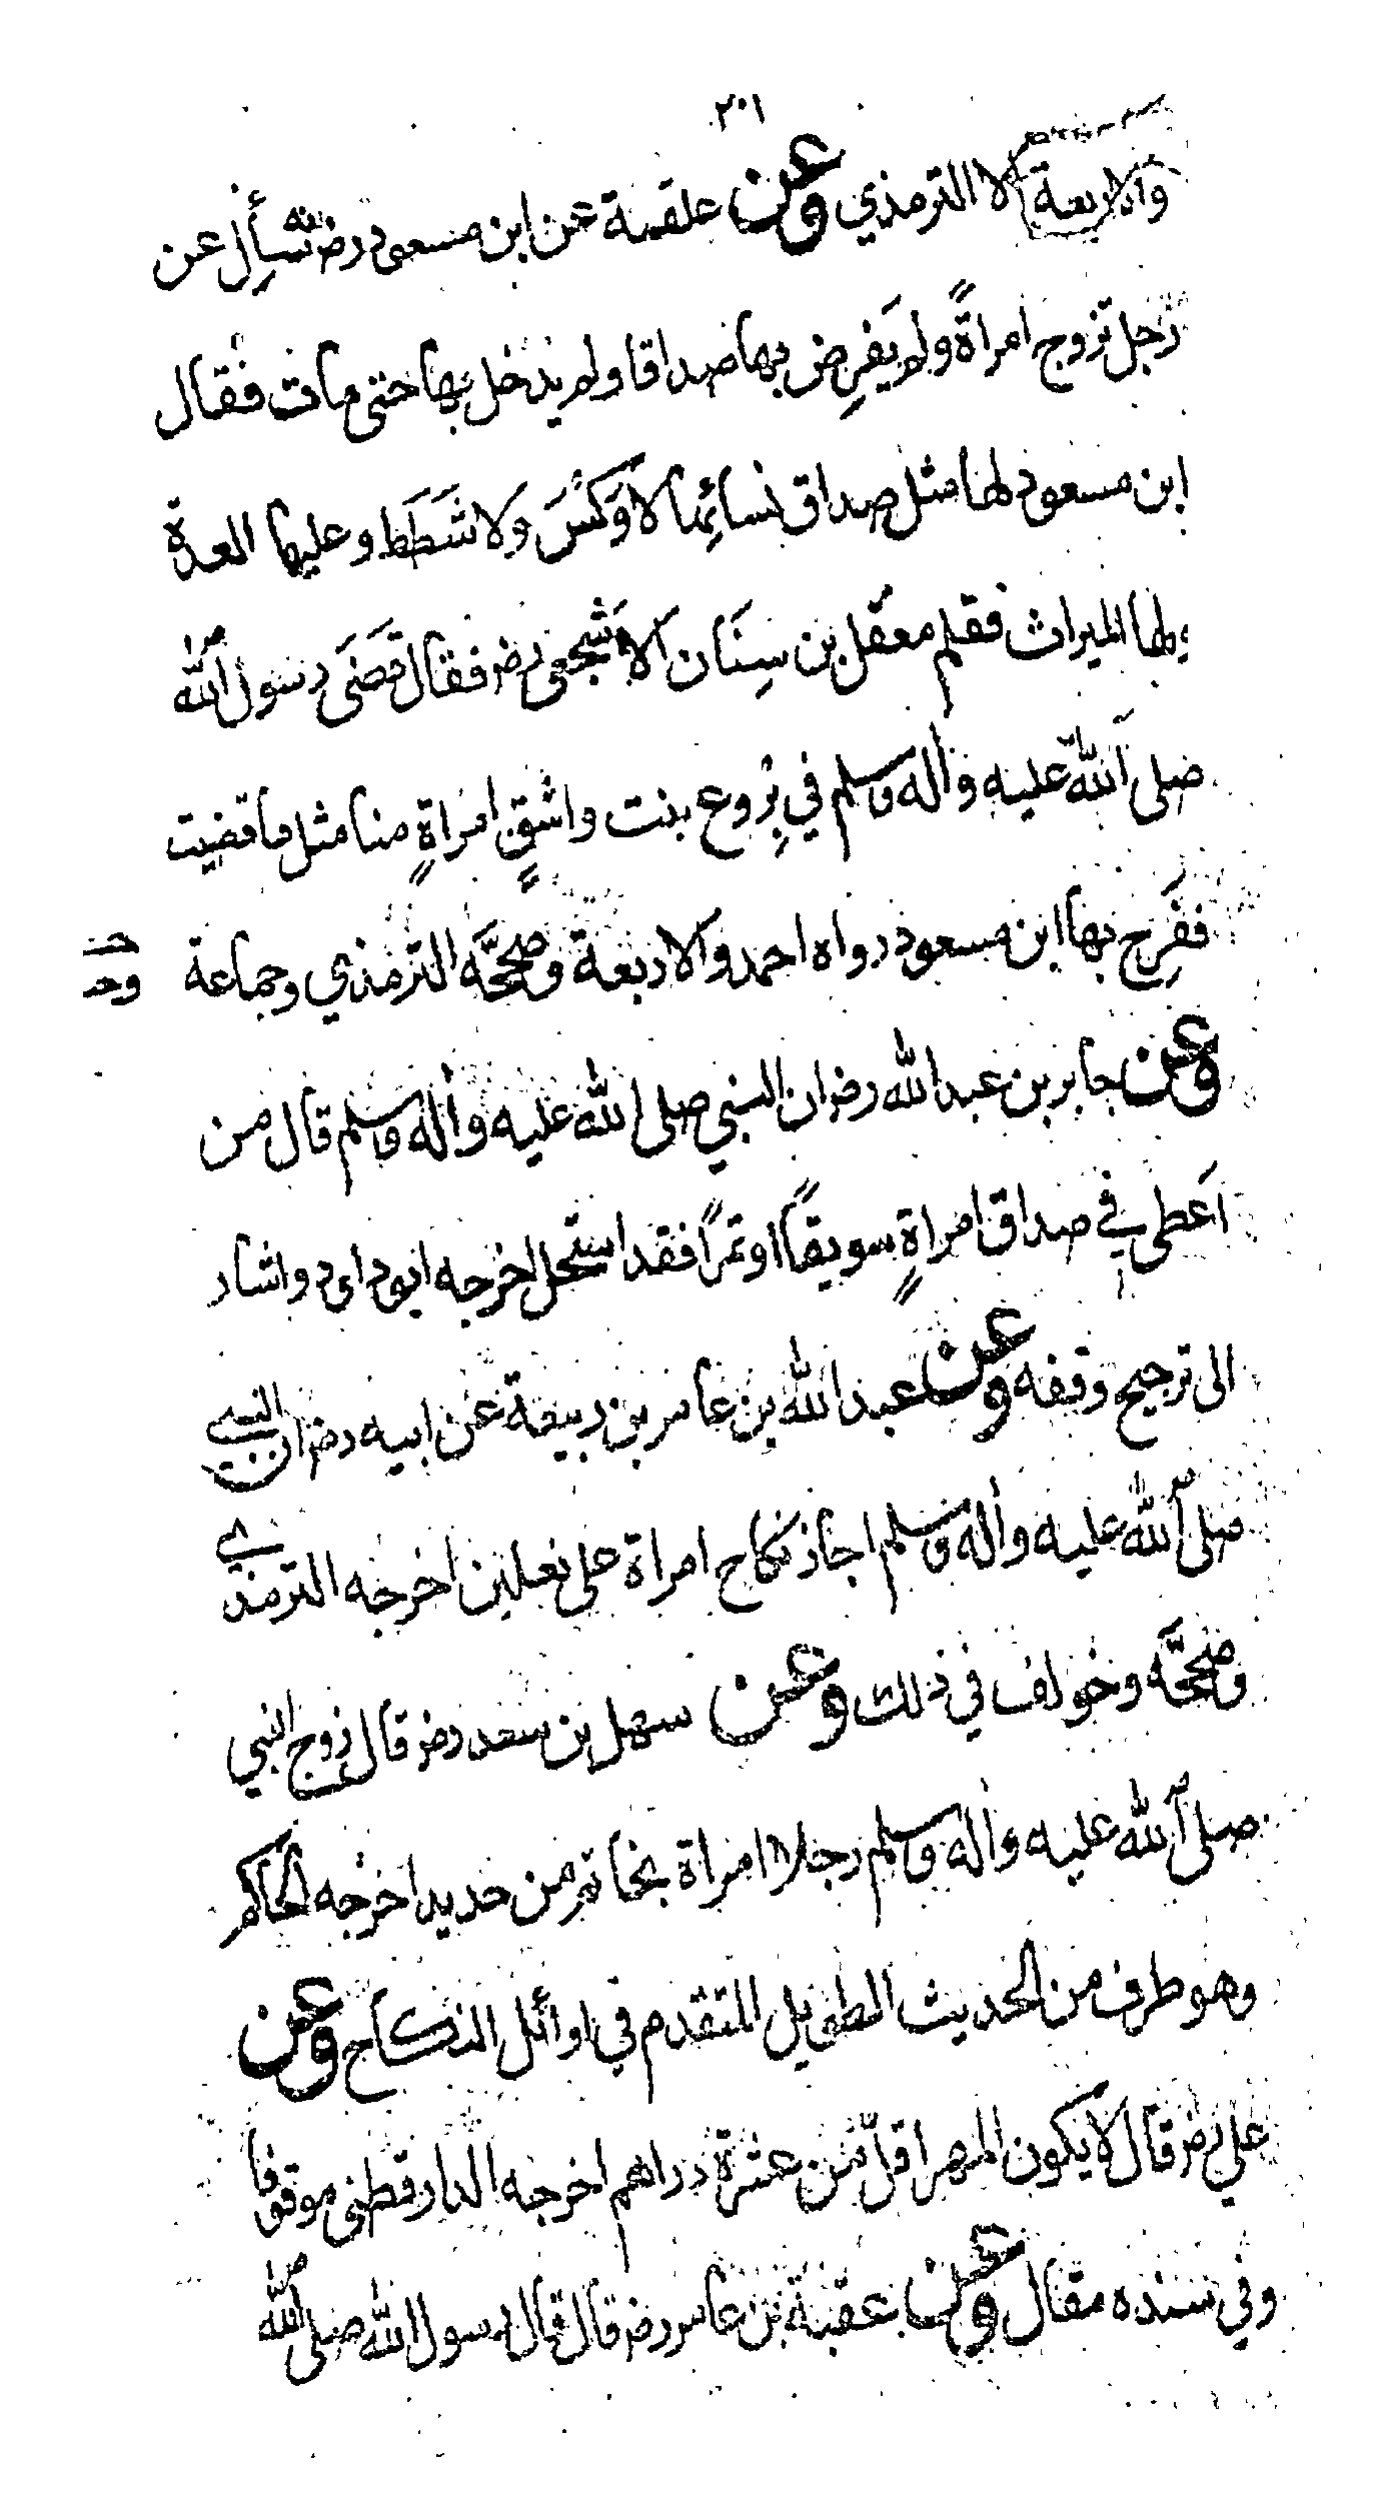 ٢٠١
والاربعة الا الترمذي وعن علقمة عن ابن مسعود رضـ انه سئل عن
رجل تزوج امراةً ولم يَفرِض بها صداقا ولم يدخل بها حتى مات فقال
ابن مسعود لها مثل صداق نسائِها لا وَكَسَ ولا شَطَط وعليها العدة
ولها الميراث فقام معقل بن سِنَان الاشجعى رضـ فقال قَضَى رسول الله
صلى الله عليه وآله وسلم في بِروع بنت واشقٍ امراةٍ منا مثل ما قضيت
ففَرِح بها ابن مسعود رواه احمد والاربعة وصححَّه الترمذي وجماعة
وعن جابر بن عبد الله رضـ ان النبي صلى الله عليه وآله وسلم قال من
اَعطى في صداق امراةٍ سويقاً او تمراً فقد استحل اخرجه ابو داود واشار
الى ترجيح وقفه وعن عبد الله بن عامر بن ربيعة عن ابيه رضـ ان النبي
صلى الله عليه وآله وسلم اجاز نكاح امراة على نعلين اخرجه الترمذي
وصححَّه وخولف في ذلك وعن سهل بن سعد رضـ قال زوج النبي
صلى الله عليه وآله وسلم رجلا امراة بخاتم من حديد اخرجه الحاكم
وهو طرف من الحديث الطويل المتقدم في اوائل النكاح وعن
علي رضـ قال لا يكون المهر اقل من عشرة دراهم اخرجه الدارقطني موقوفا
وفي سنده مقال وعن عقبة بن عامر رضـ قال قال رسول الله صلى الله